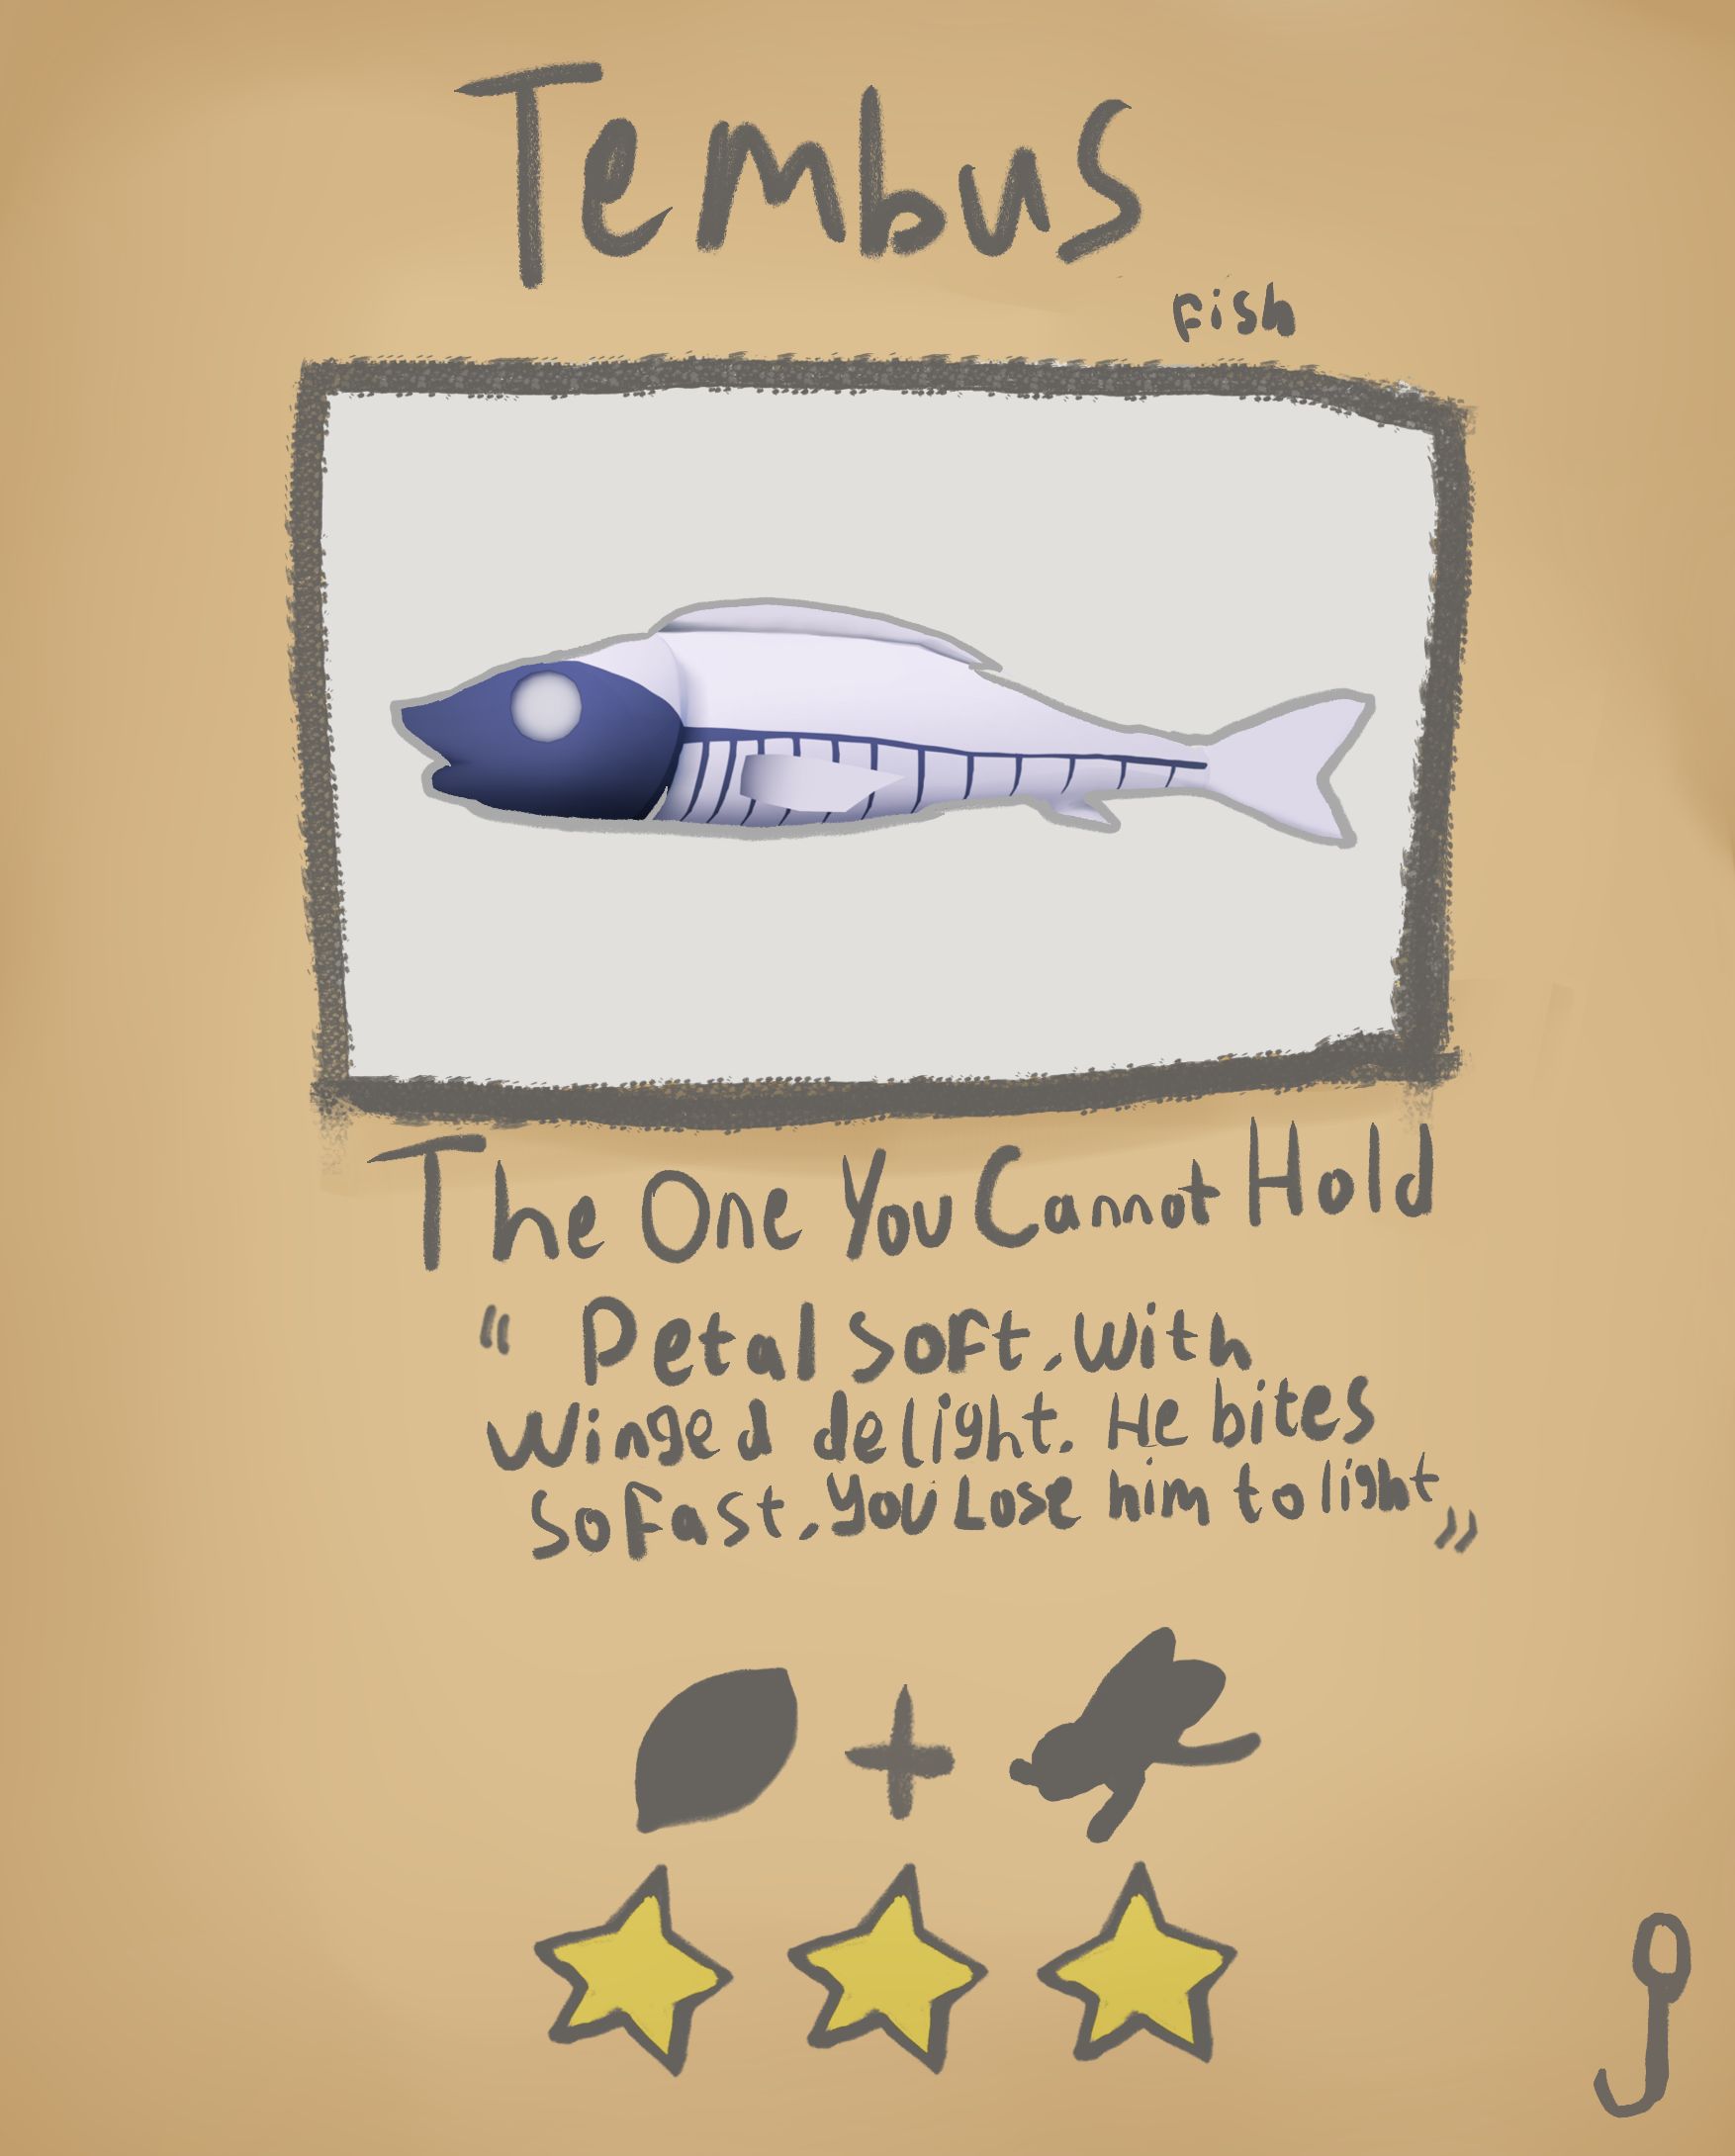 Tembus
fish
The One You Cannot Hold
“ Petal soft, with
winged delight. He bites
so fast, you Lose him to light ”